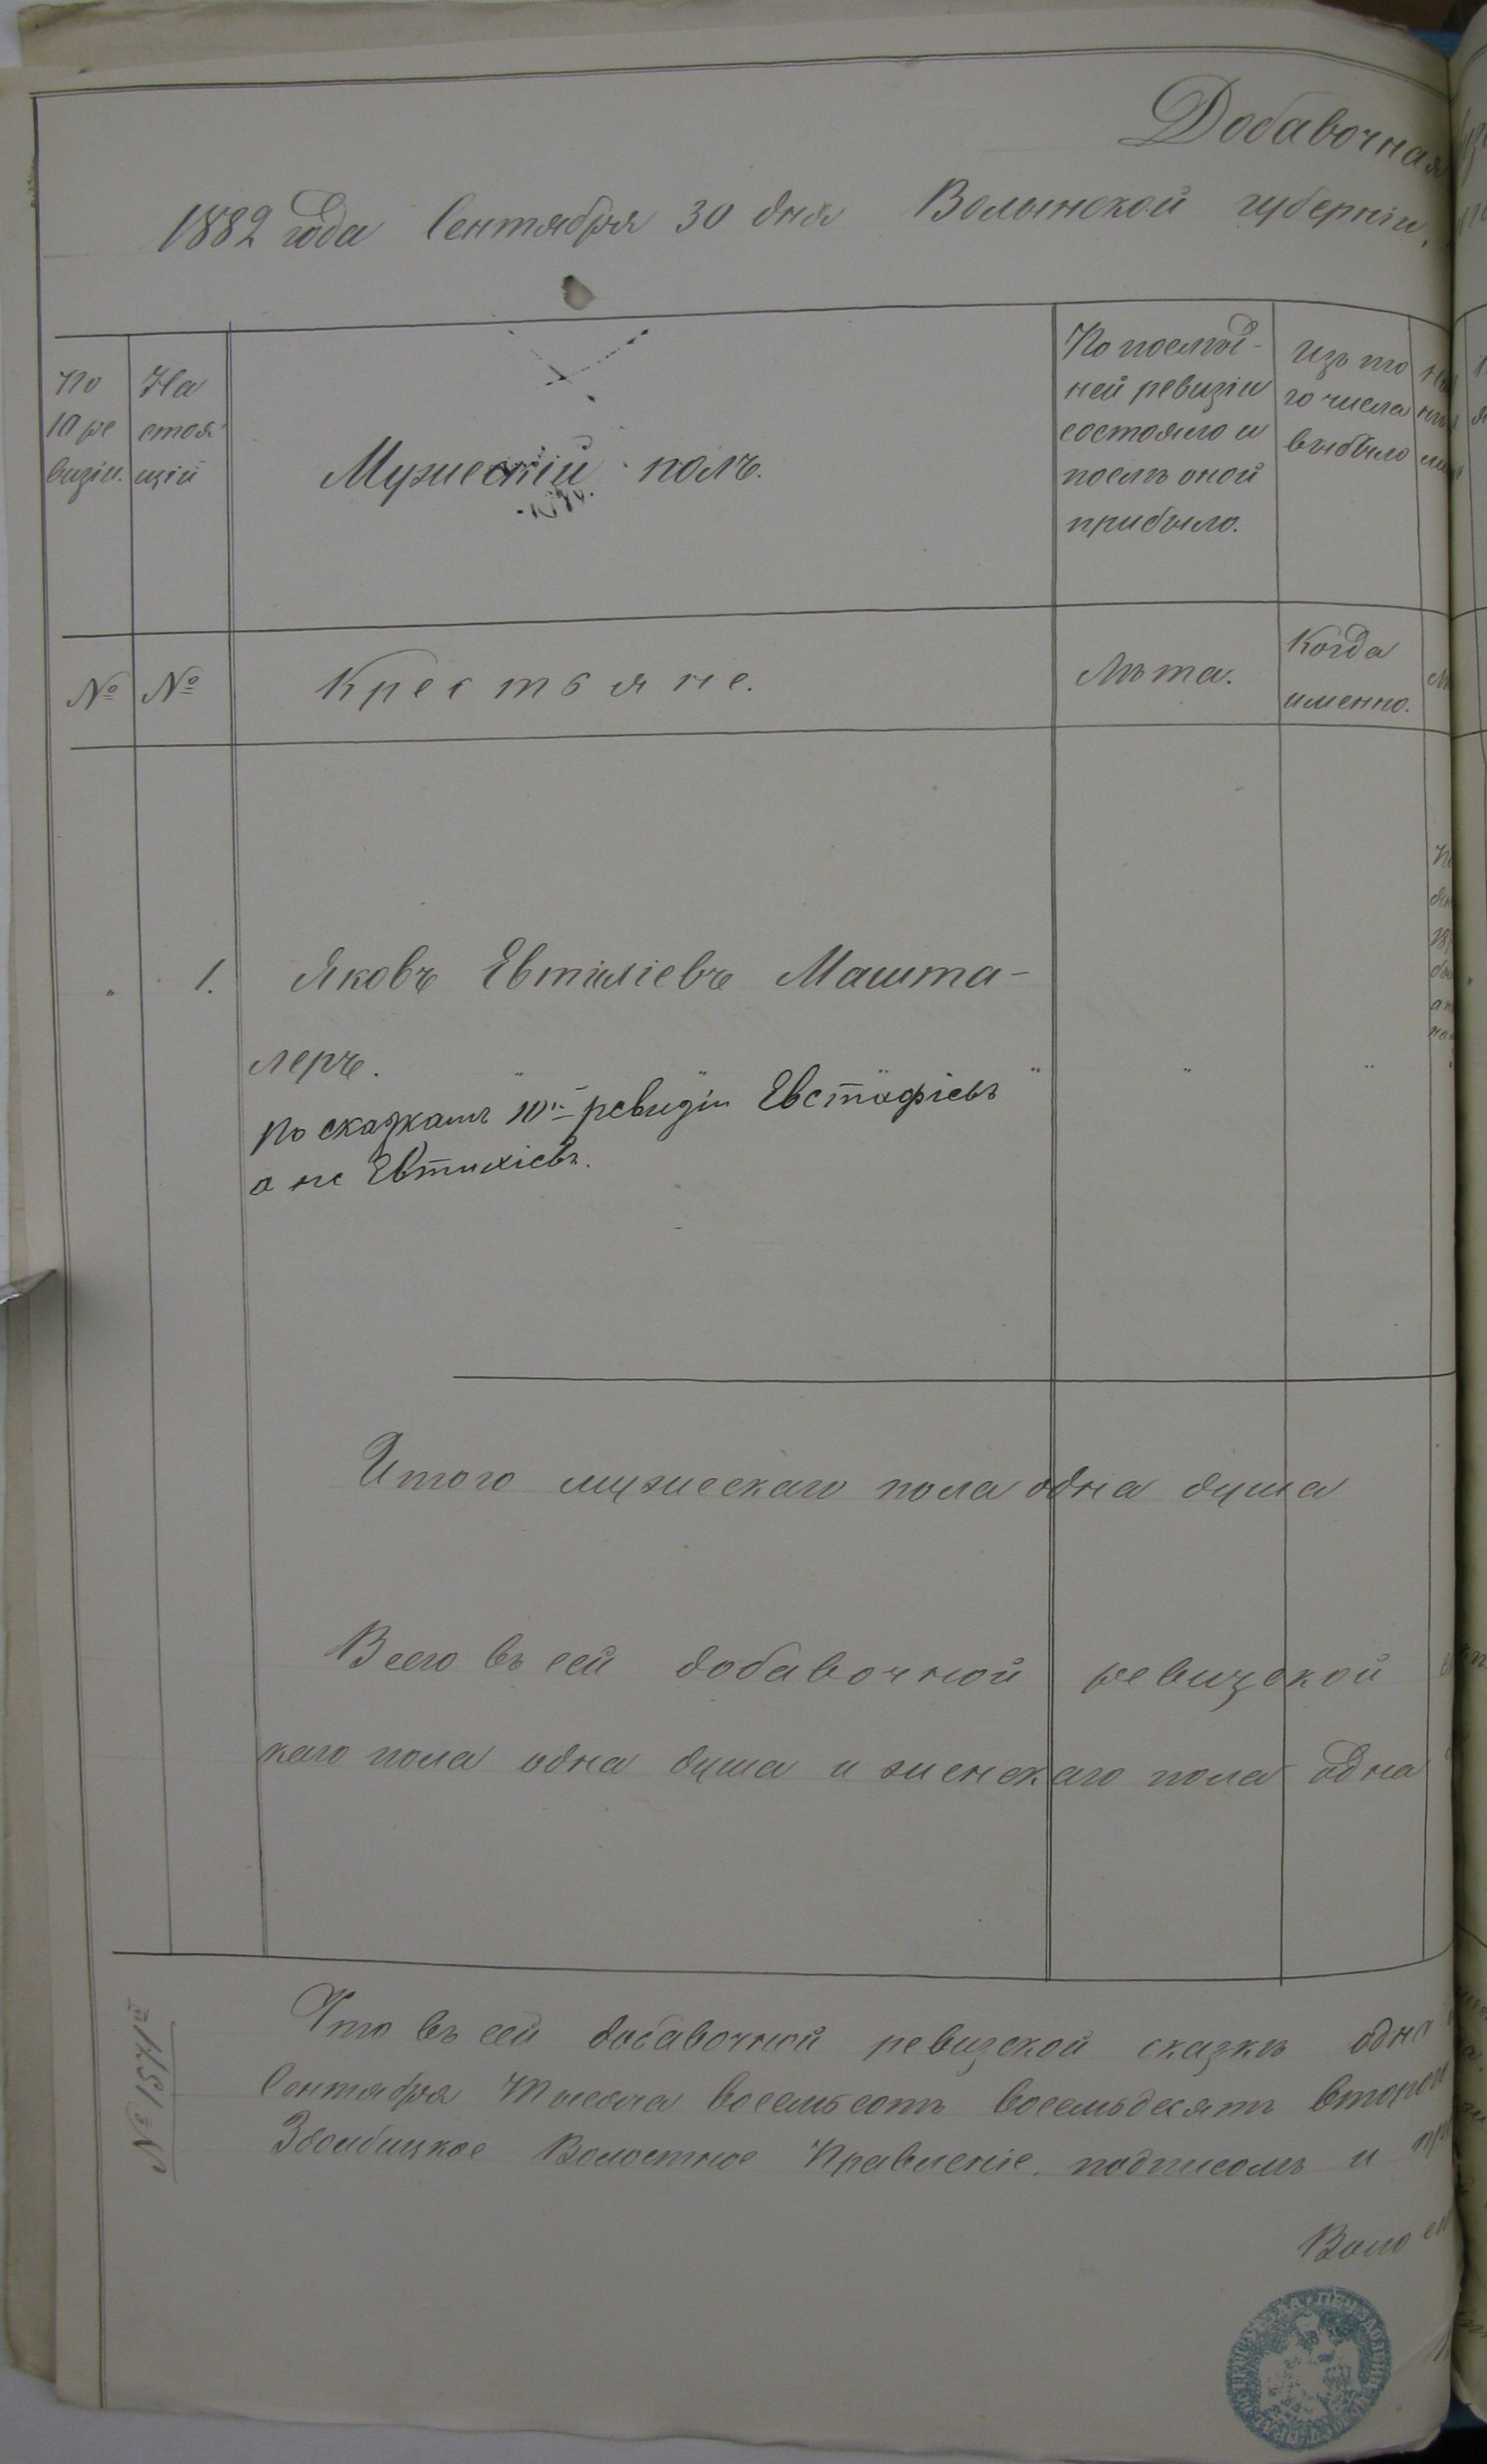 Добавочная
1882 года Сентября 30 дня Волынской губерніи,
По 10 ре визіи.
На стоя щій
Мужескій полъ.
По послѣд-
ней ревизіи
состояло и
послѣ оной
прибыло.
Изъ то
го числа
выбыло
№ №
Крестьяне.
Лѣта.
Когда
именно.
" 1. Яковъ Евтихіевъ Машта-
леръ. " " " "
по сказкамъ 10й ревизіи Евстафіевъ
а не Евтихіевъ.
Итого мужескаго пола одна душа
Всего въ сей добавочной ревизской
каго пола одна душа и женскаго пола одна
Что въ сей добавочной ревизской сказкѣ одна
Сентября Тысяча восемьсотъ восемьдесятъ второго
Волостное Правленіе подписомъ и
Воло
№ 151й